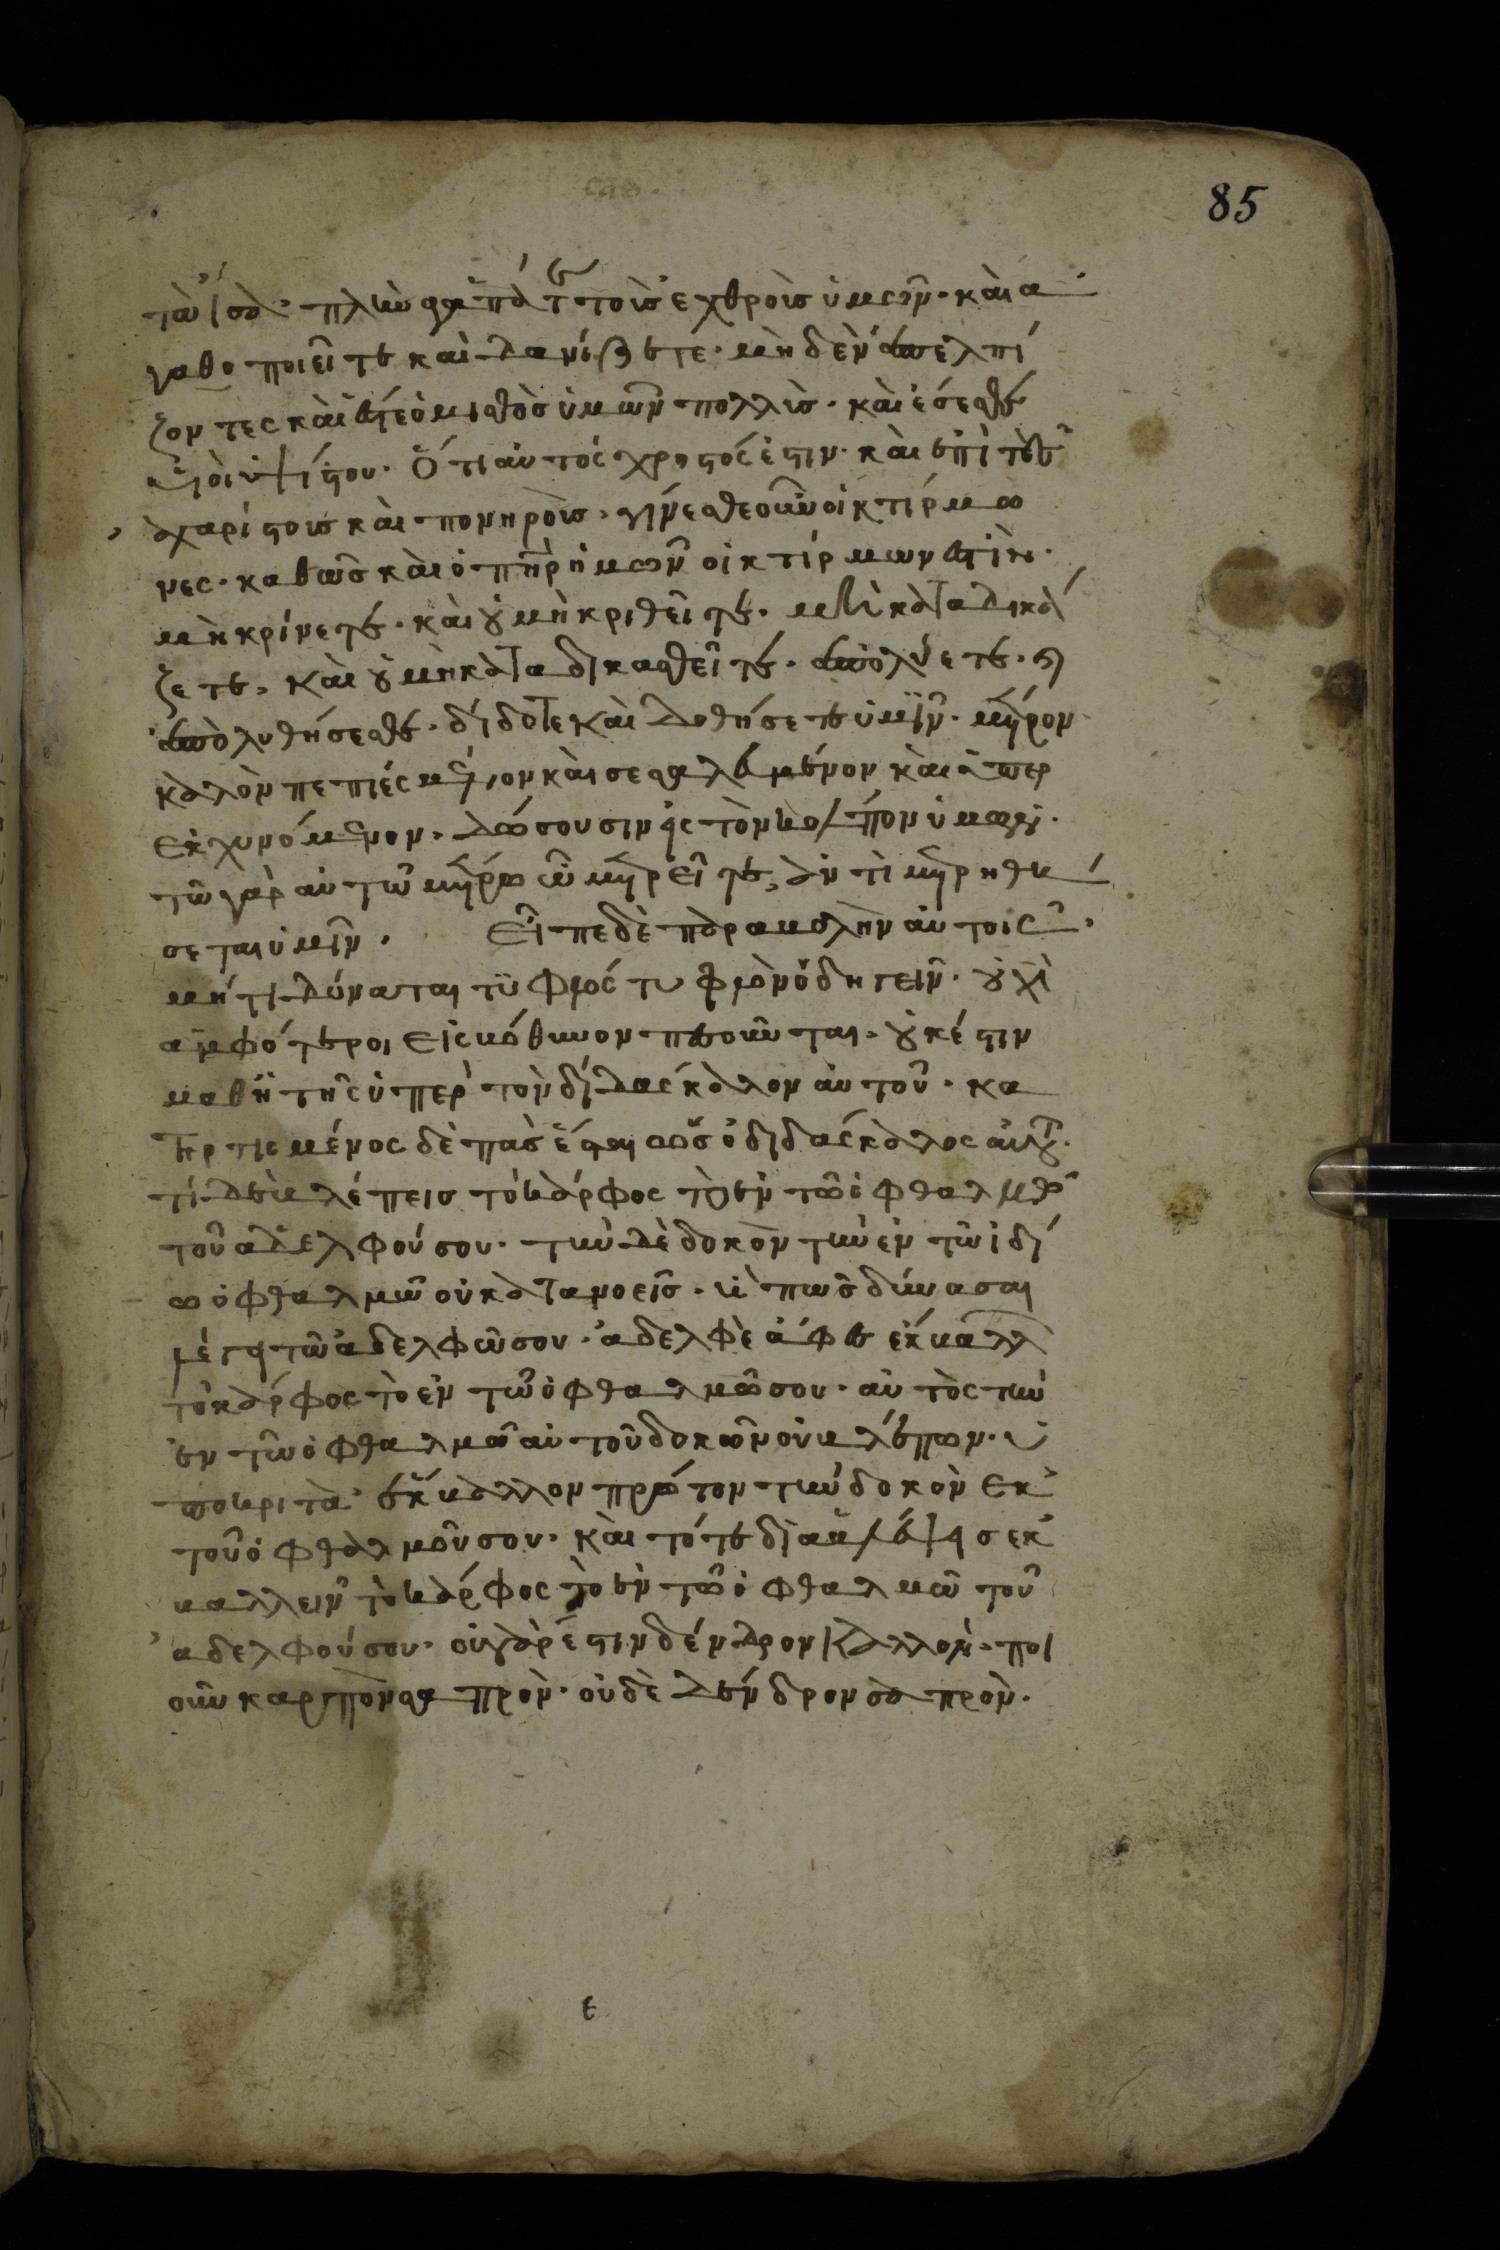 85
τὰ ἴσα. πλὴν ἀγαπᾶτε τοὺς ἐχθροὺς ὑμῶν. καὶ ἀ
γαθοποιεῖτε καὶ δανίζετε. μηδὲν ἀπελπί
ζοντες καὶ ἔσται ὁ μισθὸς ὑμῶν πολλὺς. καὶ ἔσεσθε
υἱοὶ ὑψίστου. Ὅτι αὐτός χρηστός ἐστιν. καὶ ἐπὶ τοὺς
ἀχαρίστους καὶ πονηροὺς. γίνεσθε οὖν οἰκτίρμο
νες. καθὼς καὶ ὁ πηρ ὑμῶν οἰκτίρμων ἐστὶν.
μὴ κρίνετε. καὶ οὐ μὴ κριθεῖτε. μὴ καταδικά
ζετε. καὶ οὐ μὴ καταδικασθεῖτε. ἀπολύετε. καὶ
ἀπολυθήσεσθε. δίδοτε καὶ δοθήσεται ὑμῖν. μέτρον
καλὸν πεπιεσμένον καὶ σεσαλευμένον καὶ ὑπερ
εκχυνόμενον. δώσουσιν εἰς τὸν κόλπον ὑμῶν.
τῶ γὰρ αὐτῶ μέτρω ὧ μετρεῖτε, ἀντιμετρηθή
σεται ὑμῖν. Εἶπε δὲ παραβολὴν αὐτοῖς.
μήτι δύναται τυφλός τυφλὸν ὁδηγεῖν. οὐχὶ
ἀμφότεροι εἰς βόθυνον πεσοῦνται. οὐκ έστιν
μαθητὴς ὑπὲρ τὸν διδάσκαλον αὐτοῦ. κα
τηρτισμένος δὲ πᾶς ἔσται ὡς ὁ διδάσκαλος αὐτοῦ.
τί δὲ βλέπεις τὸ κάρφος τὸ ἐν τῶ ὀφθαλμῶ
τοῦ ἀδελφού σου. τὴν δὲ δοκὸν τὴν ἐν τῶ ἰδί
ω ὀφθαλμῶ οὐ κατανοεῖς. ἢ πῶς δύνασαι
λέγειν τῶ ἀδελφῶ σου. ἀδελφὲ ἄφες ἐκβάλλω
τὸ κάρφος τὸ ἐν τῶ ὀφθαλμῶ σου. αὐτὸς τὴν
ἐν τῶ ὀφθαλμῶ αὐτοῦ δοκὸν οὐ βλέπων. ὑ
ποκριτὰ ἔκβαλλον πρῶτον τὴν δοκὸν ἐκ
τοῦ ὀφθαλμοῦ σου. καὶ τότε διαβλέψεις ἐκ
βάλλειν τὸ κάρφος τὸ ἐν τῶ ὀφθαλμῶ τοῦ
ἀδελφού σου. οὐ γὰρ έστιν δένδρον κάλλον. ποι
οῦν καρπὸν σαπρὸν. οὐδὲ δένδρον σαπρὸν.
ε